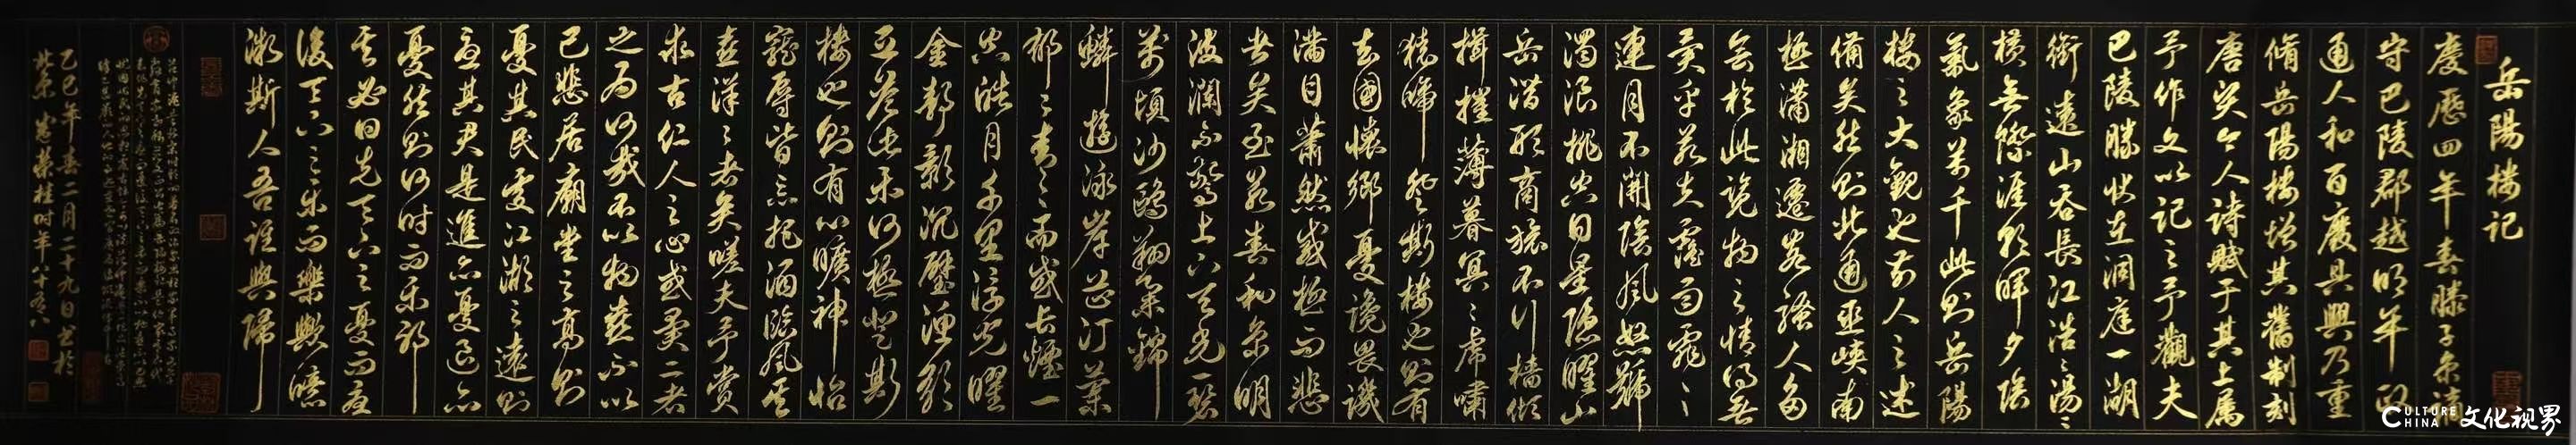 岳陽楼记
慶歷四年春滕子京谪
守巴陵郡越明年政
通人和百廢具興乃重
脩岳陽楼增其舊制刻
唐贤今人詩賦于其上属
予作文以记之予觀夫
巴陵勝状在洞庭一湖
銜遠山吞長江浩〻湯〻
横無際涯朝晖夕陰
氣象萬千此则岳陽
楼之大觀也前人之述
備矣然则北通巫峡南
極潇湘遷客騷人多
會於此览物之情得無
異乎若夫霪雨霏〻
連月不開陰風怒號
濁浪排空日星隐曜山
岳潜形商旅不行檣倾
楫摧薄暮冥〻虎嘯
猿啼登斯楼也则有
去國懷鄉憂讒畏譏
满目蕭然感極而悲
者矣至若春和景明
波澜不驚上下天光一碧
萬頃沙鷗翔集錦
鱗游泳岸芷汀蘭
郁〻青〻而或長煙一
空皓月千里浮光曜
金静影沉璧漁歌
互答此乐何極登斯
楼也则有心曠神怡
寵辱皆忘把酒临風其
喜洋〻者矣嗟夫予嘗
求古仁人之心或異二者
之为何哉不以物喜不以
己悲居廟堂之高则
憂其民處江湖之遠则
憂其君是進亦憂退亦
憂然则何时而乐耶
其必曰先天下之憂而憂
後天下之乐而樂歟噫
微斯人吾谁與歸
乙巳年春二月二十九日书於
北京 荣桂时年八十有八
CULTURE CHINA 文化视界